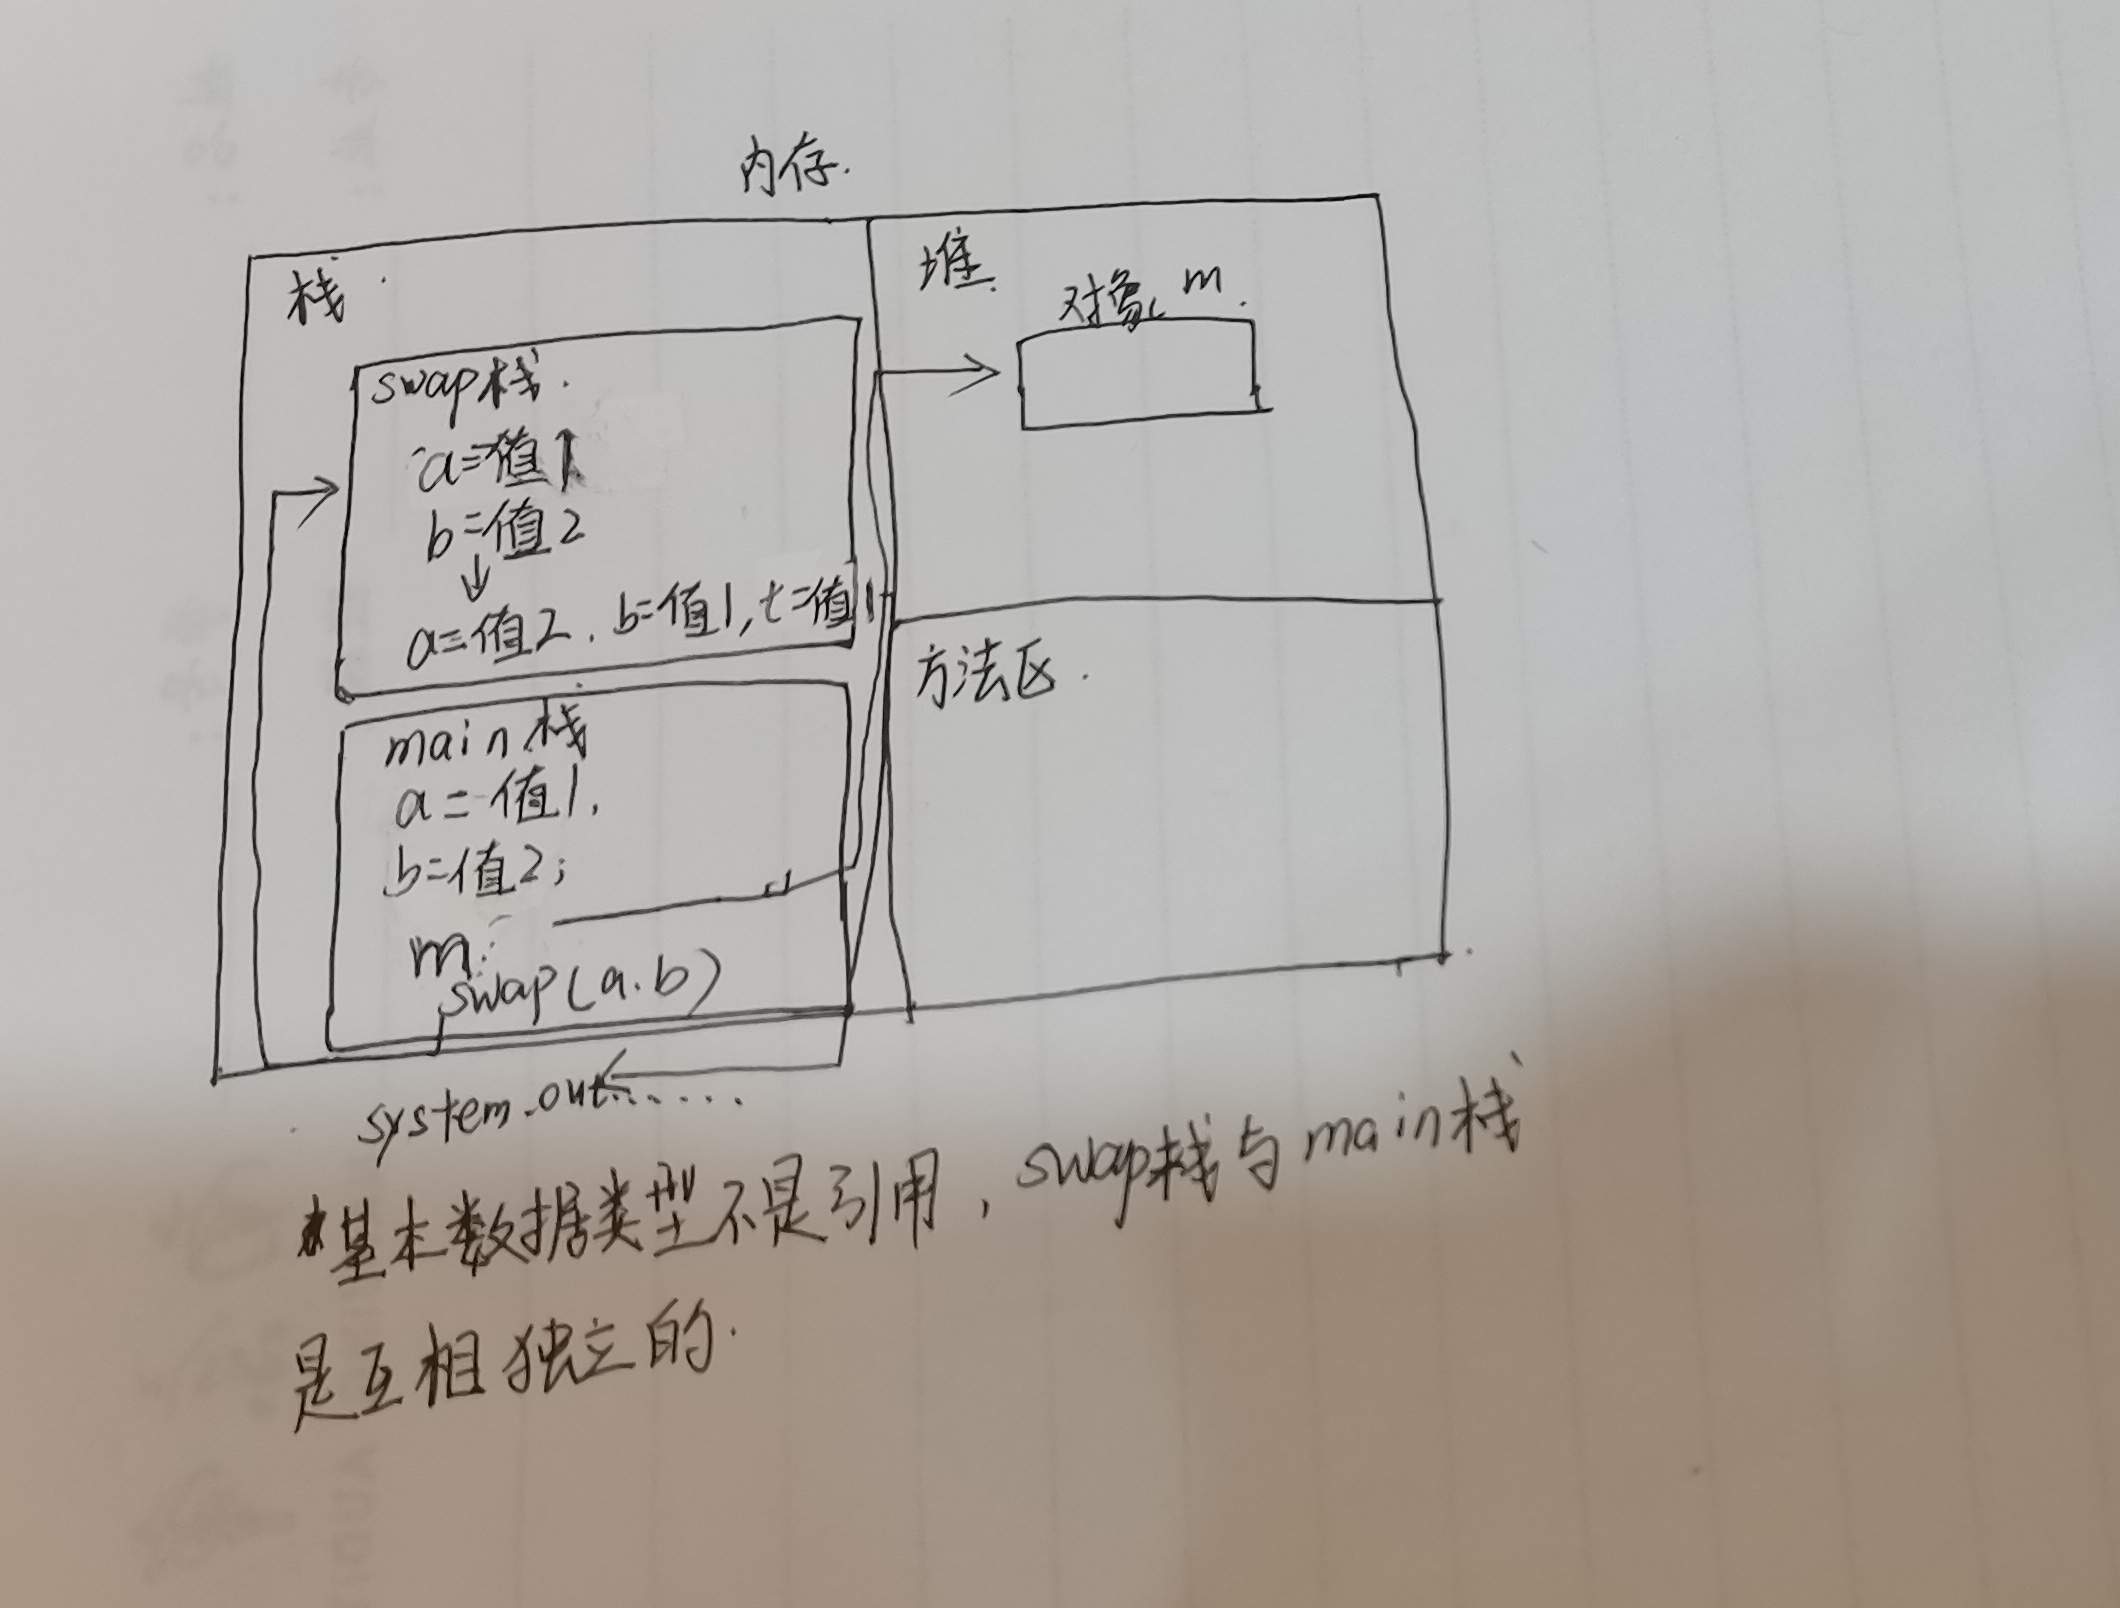 内存.
栈.
swap栈.
a=值1
b=值2
↓
a=值2. b=值1,t=值1
main栈
a=值1,
b=值2;
m.
swap(a.b)
堆.
对象 m.
方法区.
system.out......
基本数据类型不是引用，swap栈与main栈
是互相独立的.